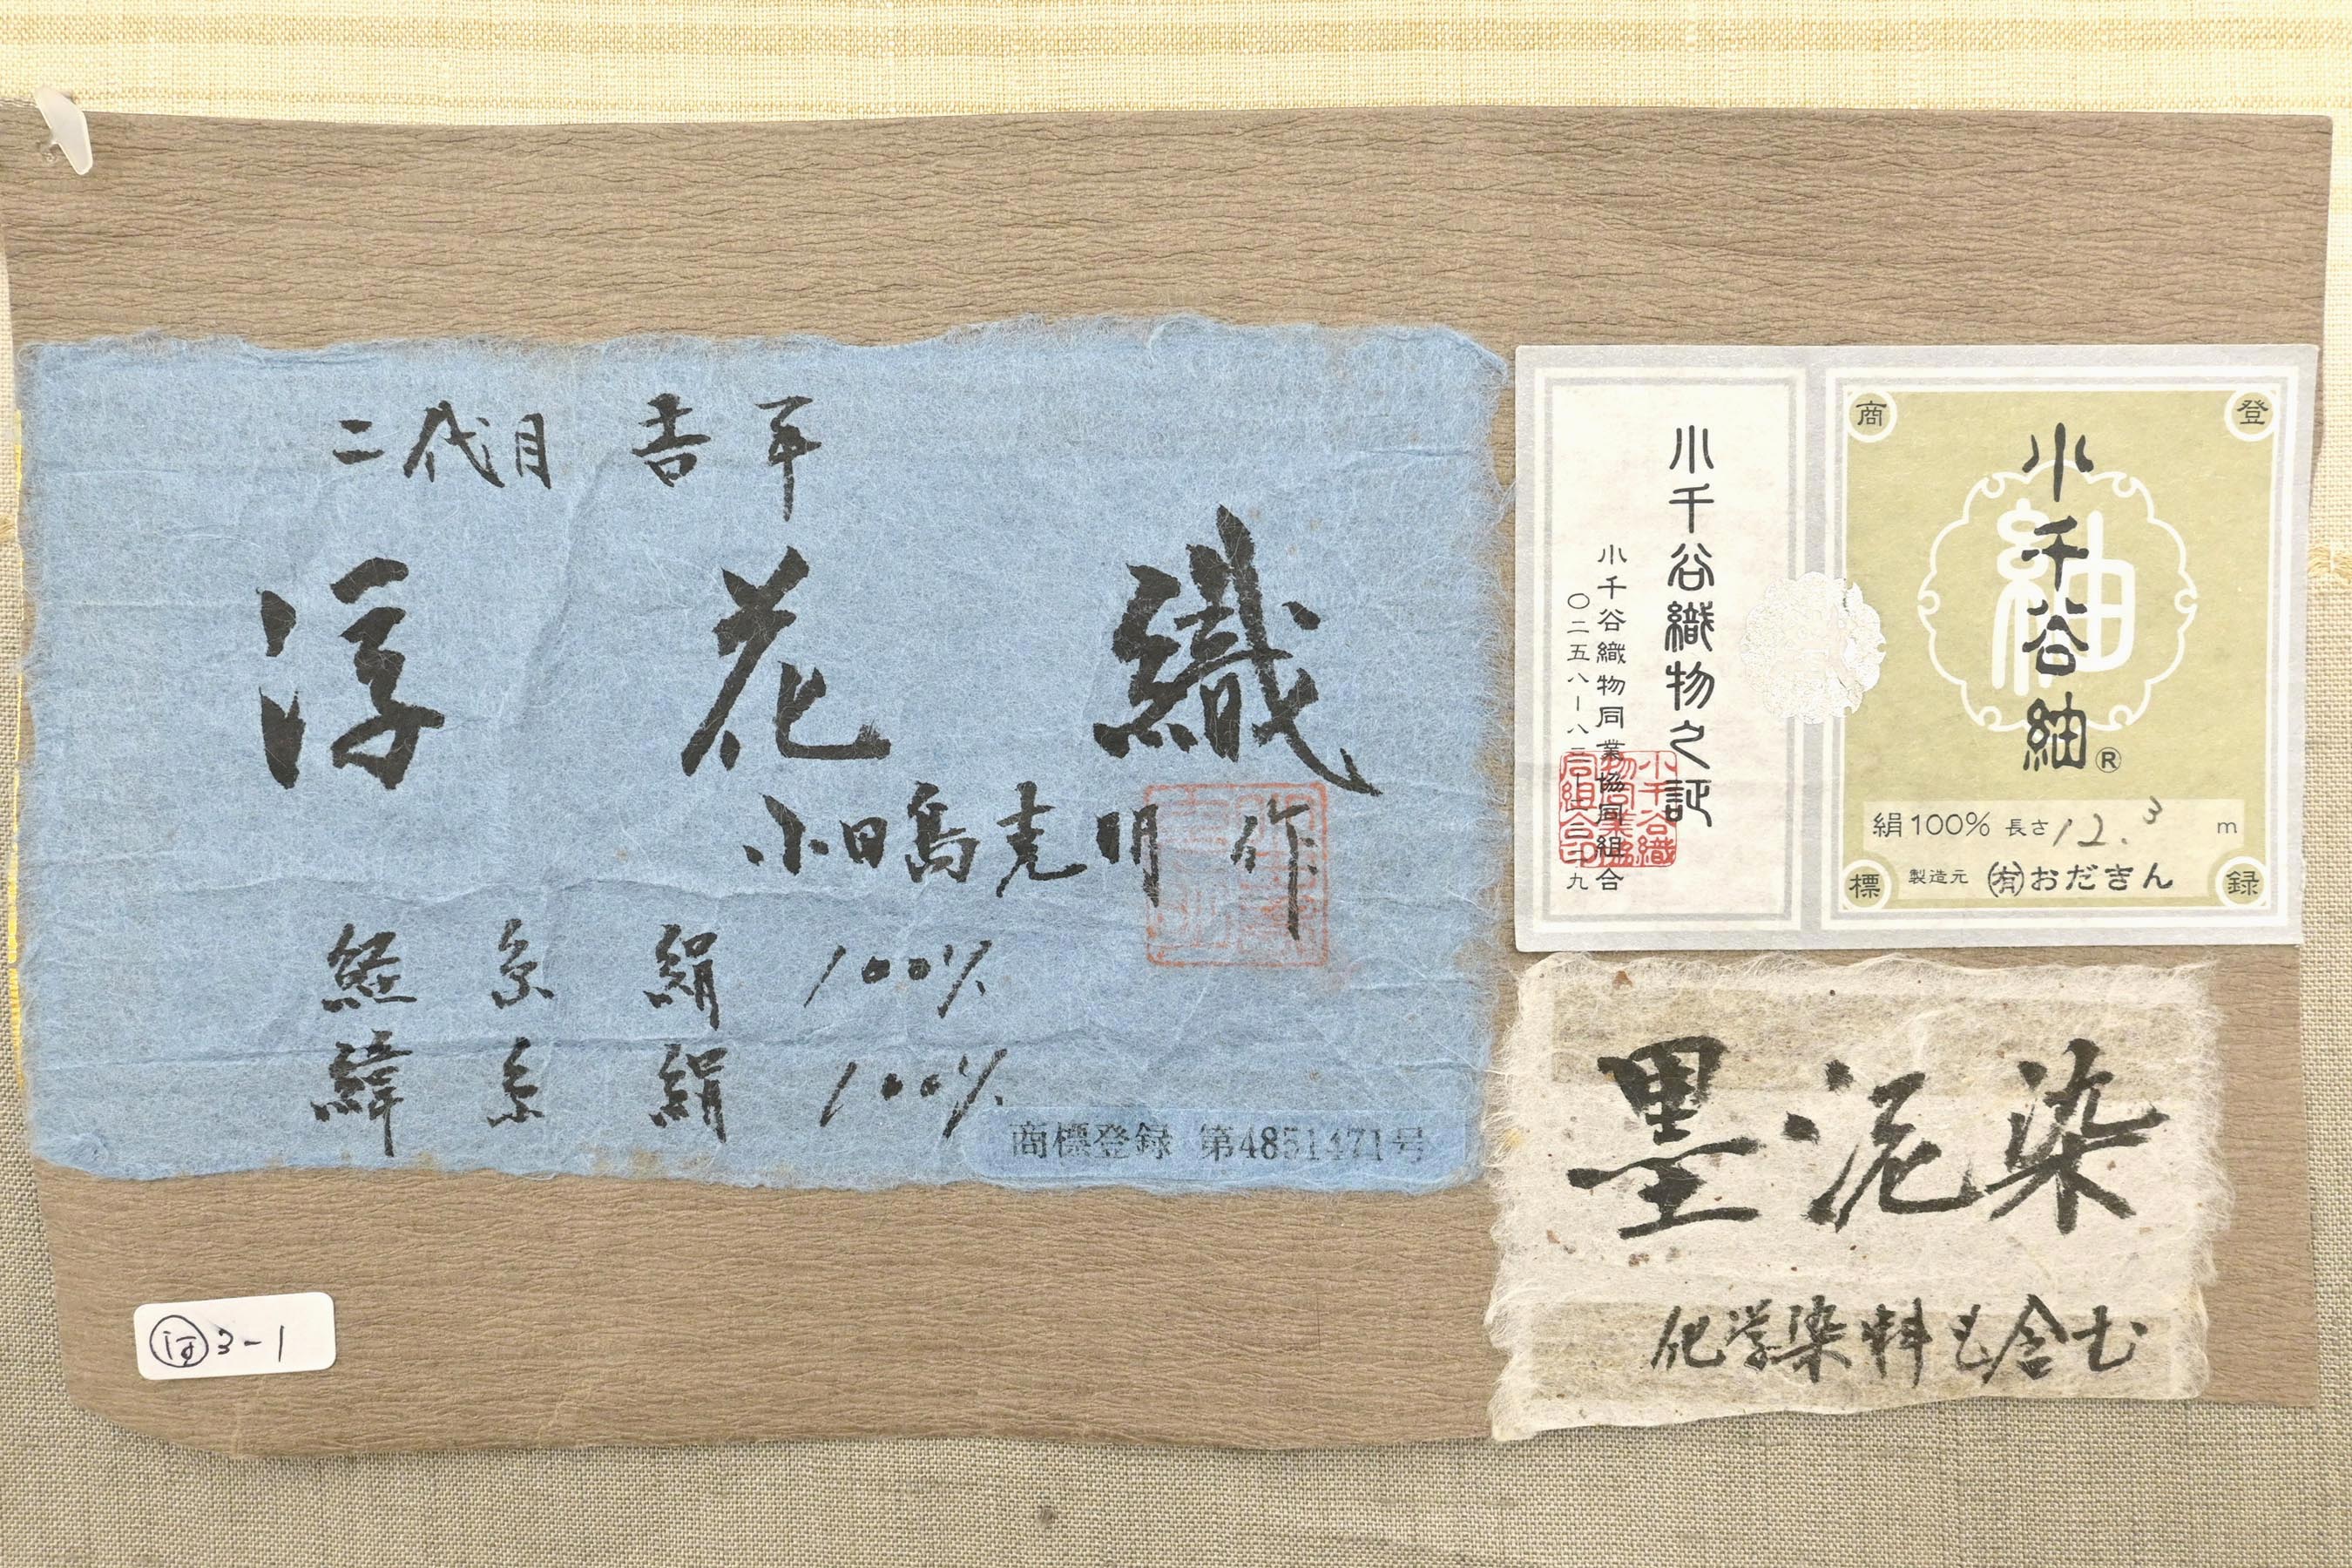 二代目 吉平
浮花織
小田島克明 作
経糸 絹 100%
緯糸 絹 100%
商標登録 第4851471号
小千谷織物之証
小千谷織物同業協同組合
〇二五八ー八三ー二三二九
登録
商標
紬
小千谷紬®
絹100% 長さ12.3m
製造元 ㈲おだきん
墨泥染
化学染料も含む
河3-1